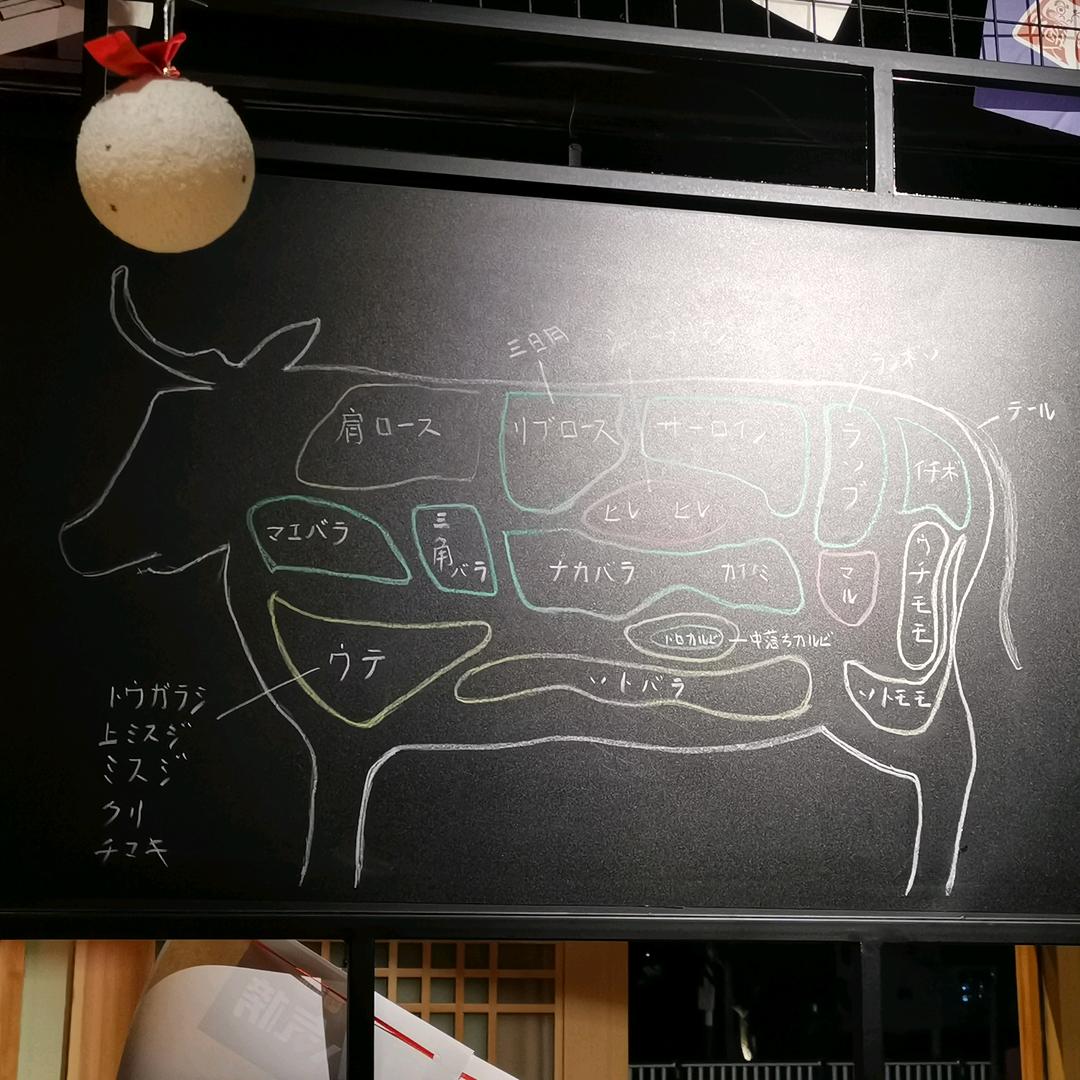 三日月
テール
肩ロース
リブロース
サーロイン
ランプ
イチボ
マエバラ
三角バラ
ヒレ
ヒレ
ナカバラ
カイノミ
マル
ウチモモ
中落ちカルビ
ウデ
ソトバラ
ソトモモ
トウガラシ
上ミスジ
ミスジ
クリ
チマキ